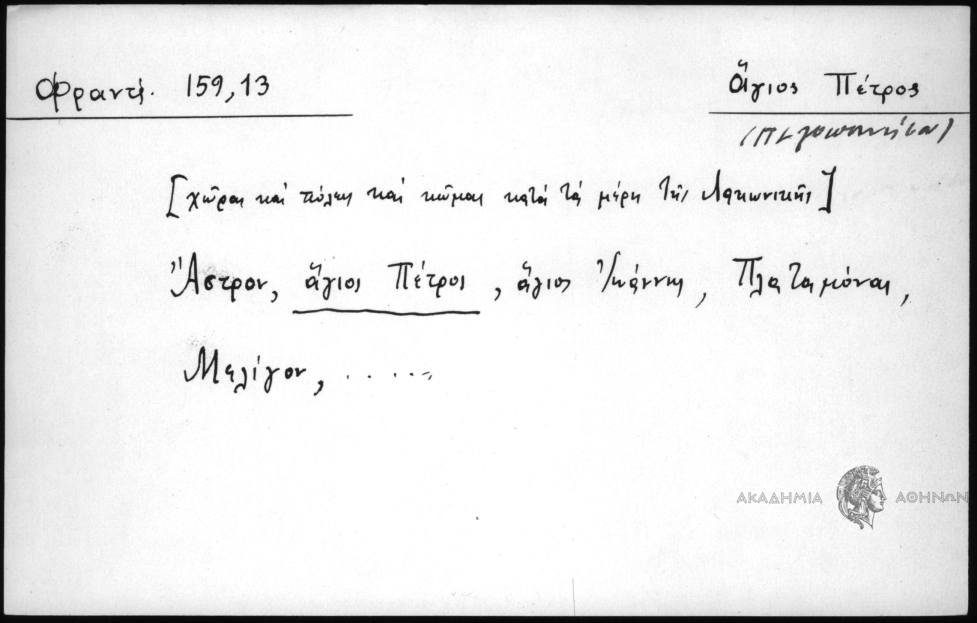 Φραντζ. 159,13
Ἅγιος Πέτρος
(Πελοποννήσου)
[χῶραι καὶ πόλεις καὶ κῶμαι κατὰ τὰ μέρη τῆς Λακωνικῆς]
Ἄστρον, ἅγιος Πέτρος, ἅγιος Ἰωάννης, Πλαταμόναι,
Μελίγον, . . . . .
ΑΚΑΔΗΜΙΑ ΑΘΗΝΩΝ